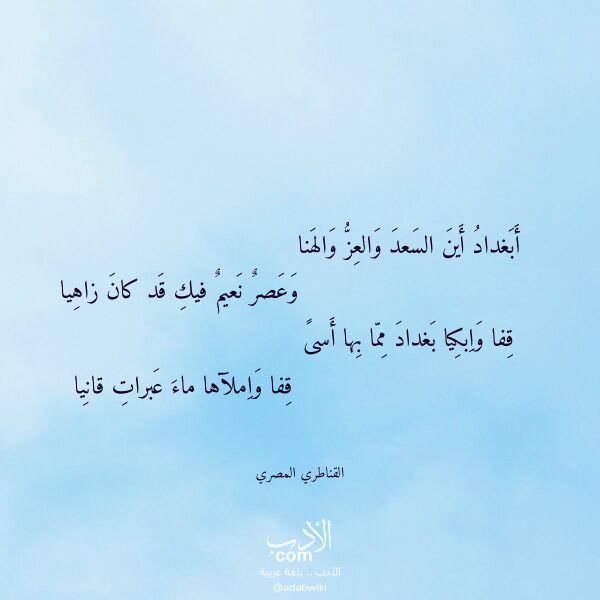 أَبَغدادُ أَينَ السَعدَ وَالعِزُّ وَالهَنا
وَعَصرٌ نَعيمٌ فيكِ قَد كانَ زاهِيا
قِفا وَاِبكِيا بَغدادَ مِمّا بِها أَسىً
قِفا وَاِملآها ماءَ عَبراتِ قانِيا
القناطري المصري
الأدب
com
الأدب .. بلغة عربية
@adabwiki